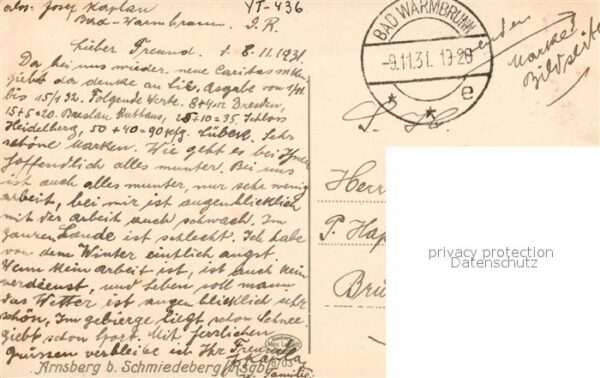 abs: Josef Kaplan YT-436
Bad-Warmbrunn. I. R.
Lieber Freund. d. 8.11.1931.
Da bei uns wieder neue Caritasmarken
giebt da denke an Sie, Ausgabe von 1/11
bis 15/1 32. Folgende Werte. 8+4=12 Dresden,
15+5=20. Breslau Rathaus, 25+10=35, Schloss
Heidelberg, 50+40=90 Pfg. Lübeck. Sehr
schöne Marken. Wie geht es bei Ihnen
hoffendlich alles munter. Bei uns
ist auch alles munter, nur sehr wenig
arbeit, bei mir ist augenblicklich
mit der arbeit auch schwach. Im
ganzen Lande ist schlecht. Ich habe
von dem Winter eintlich angst.
Wenn kein arbeit ist, ist auch kein
verdienst, und leben soll mann
das Wetter ist augenblicklich sehr
schön, Im gebierge liegt schon Schnee
giebt schon Sport. Mit herzlichen
grüssen verbleibe ich Ihr Freund
J. Kaplan
Familie
Arnsberg b. Schmiedeberg Rsgb.
BAD WARMBRUNN
-9.11.31. 19-20
e
Marke
Bildseite
Herr
P. Hap
Brü
privacy protection
Datenschutz